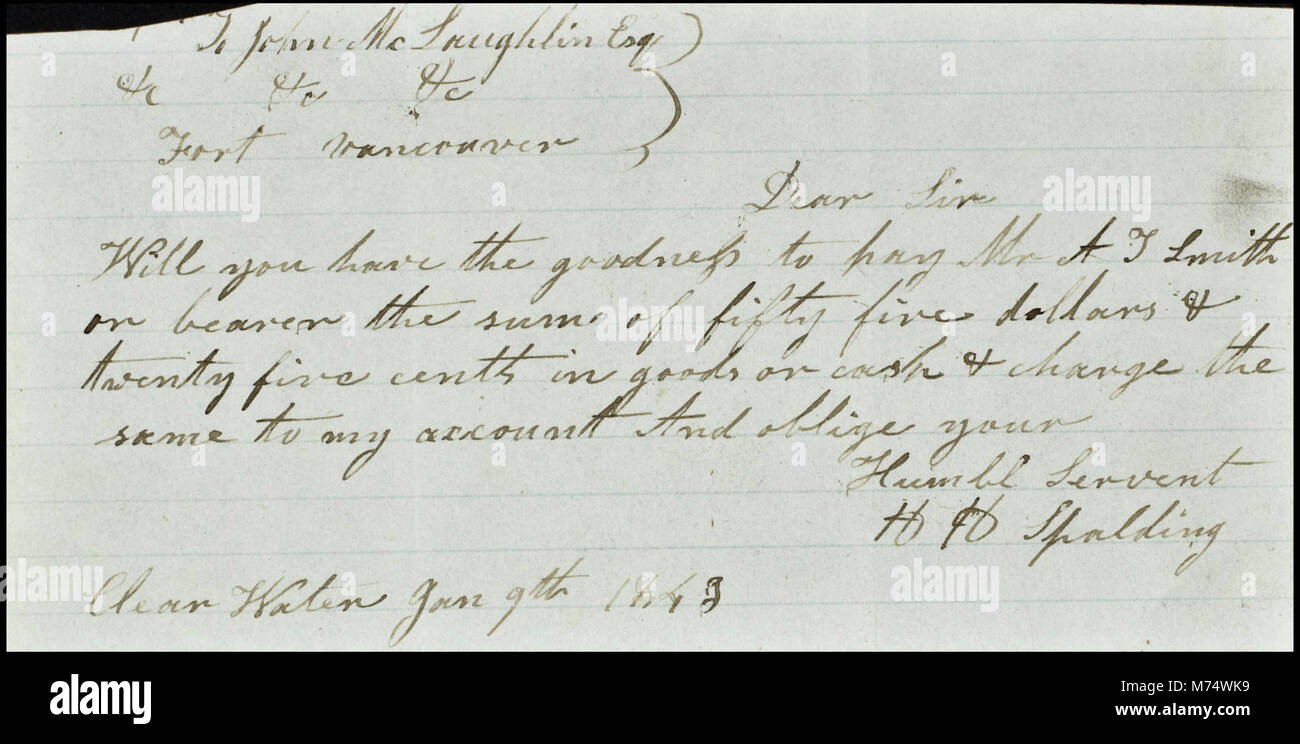 To John McLaughlin Esq
&c &c &c
Fort Vancouver
Dear Sir
Will you have the goodness to pay Mr A T Smith
or bearer the sum of fifty five dollars &
twenty five cents in goods or cash & charge the
same to my account And oblige your
Humbl Servent
H H Spalding
Clear Water Jan 9th 1843
alamy
Image ID: M74WK9
www.alamy.com